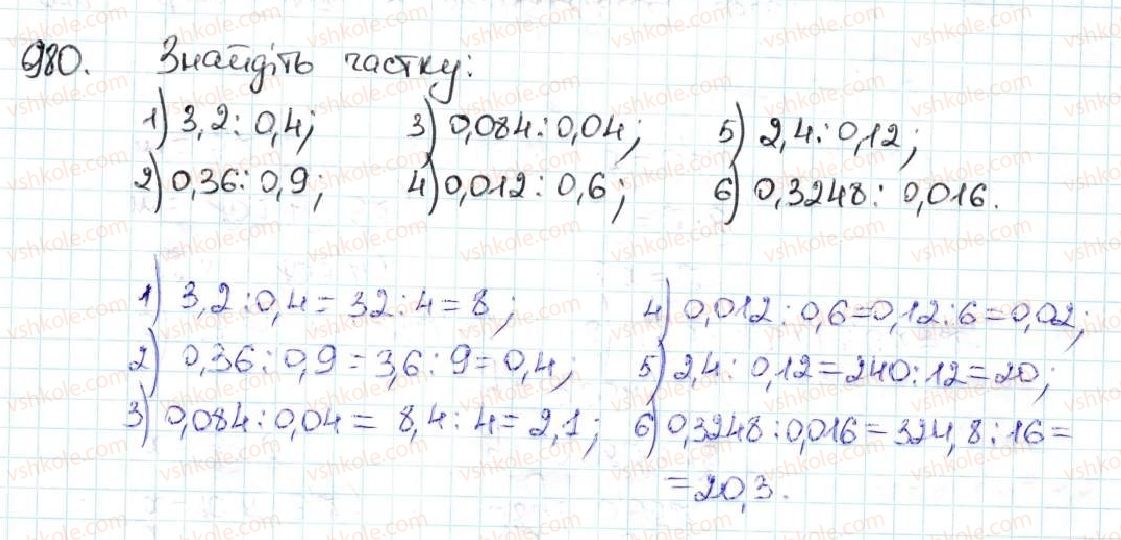 980. Знайдіть частку:
1) 3,2 : 0,4; 3) 0,084 : 0,04; 5) 2,4 : 0,12;
2) 0,36 : 0,9; 4) 0,012 : 0,6; 6) 0,3248 : 0,016.
1) 3,2 : 0,4 = 32 : 4 = 8;
2) 0,36 : 0,9 = 3,6 : 9 = 0,4;
3) 0,084 : 0,04 = 8,4 : 4 = 2,1;
4) 0,012 : 0,6 = 0,12 : 6 = 0,02;
5) 2,4 : 0,12 = 240 : 12 = 20;
6) 0,3248 : 0,016 = 324,8 : 16 =
= 20,3.
vshkole.com